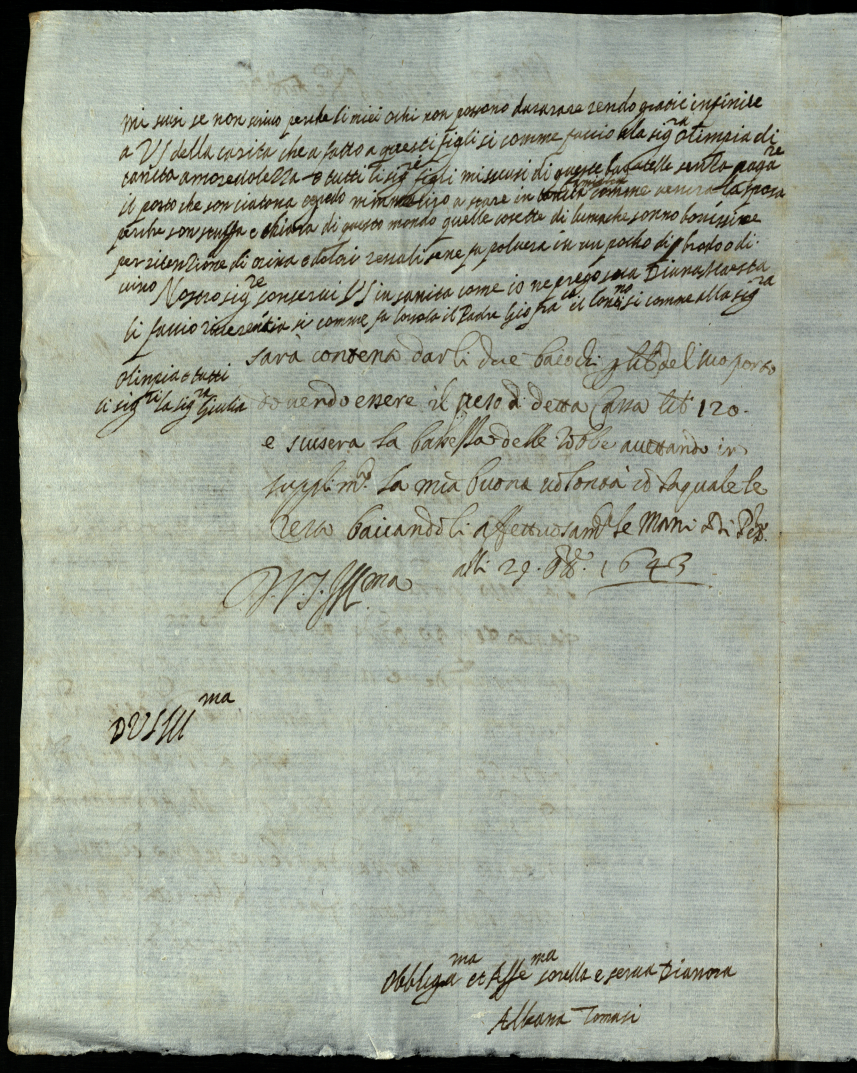 mi scusi se non scrivo perche li miei ochi non possono durarare rendo gratie infinite
a VS della carita che a fatto a questi figli si comme faccio ala sig.ra Olimpia di
tanita amoredoleza e tutti li sig.re figli mi scusi di queste bagatelle senza pagare
il porto che son ciatona credo mi mmaliro a stare in comme venera la sposa
perche son stuffa e chiara di questo mondo quelle cosette di lumache sonno bonissime
per ritentione di orina e dolori renali sene fa polvera in un pocho di brodo o di
vino Nostro sig.re conservi VS in sanita come io ne prego suora Diana Maesta
li faccio riverentia si comme fa loreta il Padre Gio fra.co il si comme alla sig.ra
Olimpia e tutti
li sig.ri la sig.ra Giulia
sarà contenta darli due baiochi lib. del suo porto
dovendo essere il peso di detta Cassa lib 120.
e scusera la bassessa delle robe accettando in
suppli.mto la mia buona volontà cō laquale le
resto baciandoli affettuosam.te le Mani di
alli 29. 1643
D. V. S. Ill.ma
D VS Ill.ma
Obbliga.ma et Affe.ma sorella e serva Dianora
Albana Tomasi